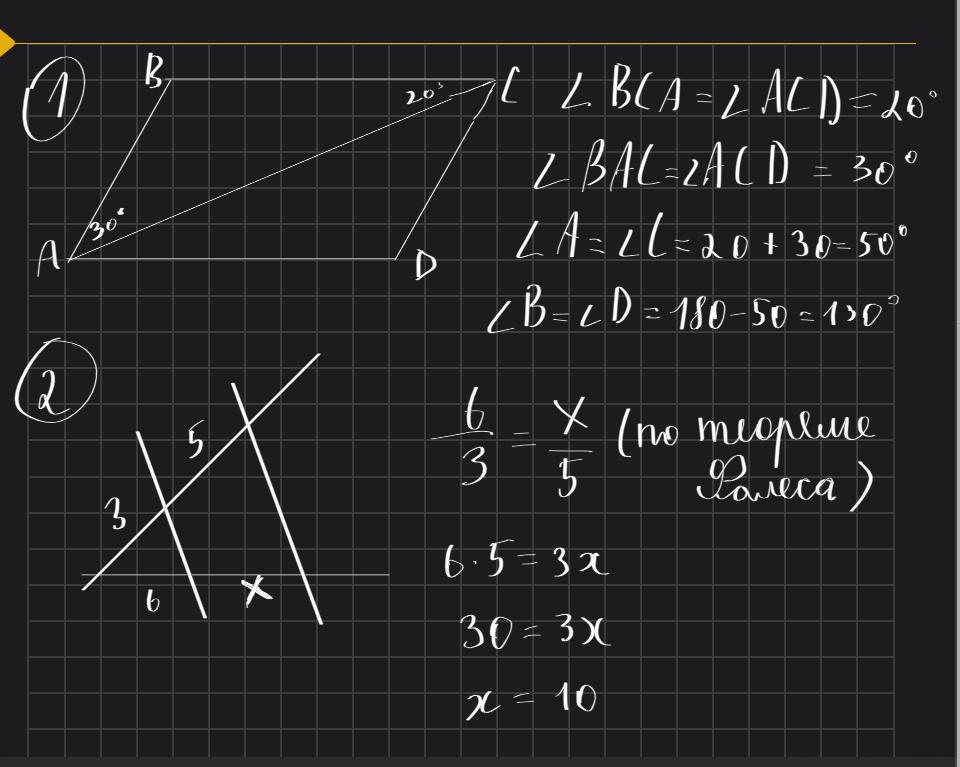 1
B
20°
C
30°
A
D
∠BCA=∠ACD=20°
∠BAC=∠ACD=30°
∠A=∠C=20+30=50°
∠B=∠D=180-50=130°
2
5
3
6
x
6/3=x/5 (по теореме
Фалеса)
6·5=3x
30=3x
x=10